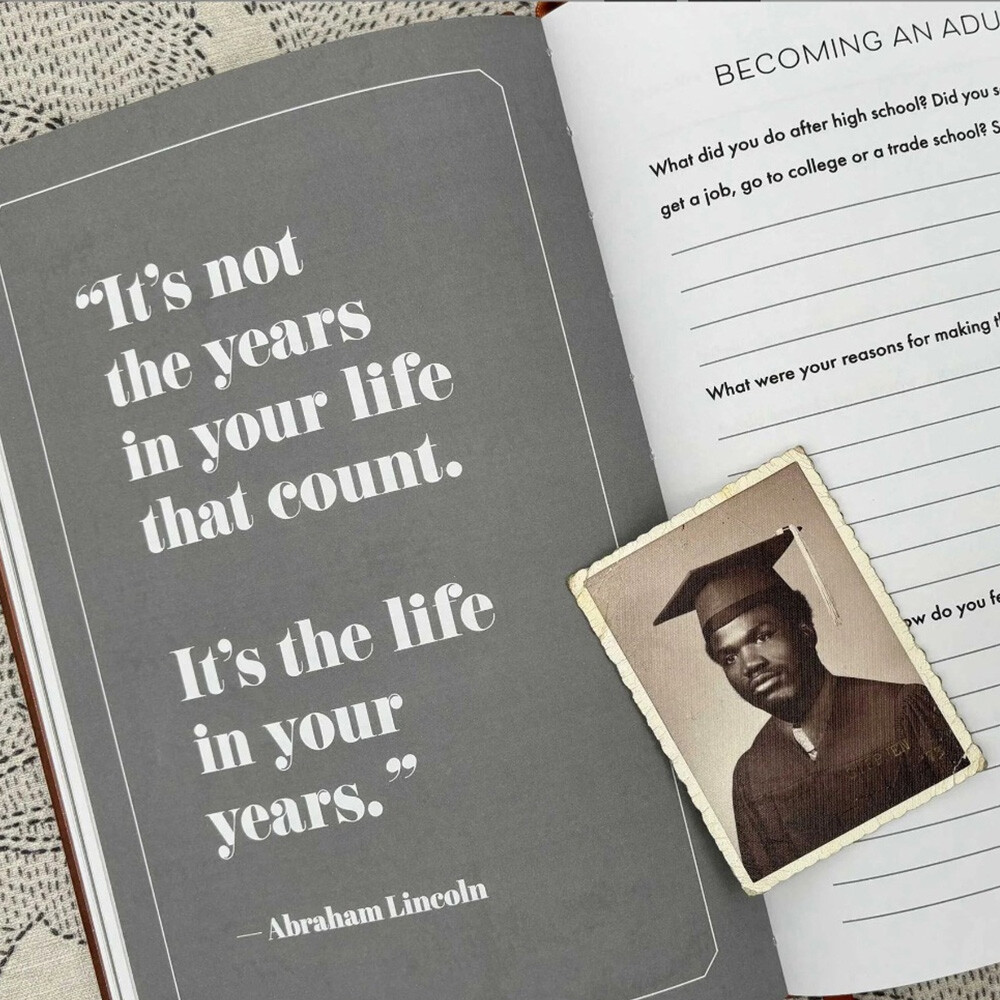 “It’s not
the years
in your life
that count.
It’s the life
in your
years.”
— Abraham Lincoln
BECOMING AN ADU
What did you do after high school? Did you s
get a job, go to college or a trade school? S
What were your reasons for making th
ow do you fe